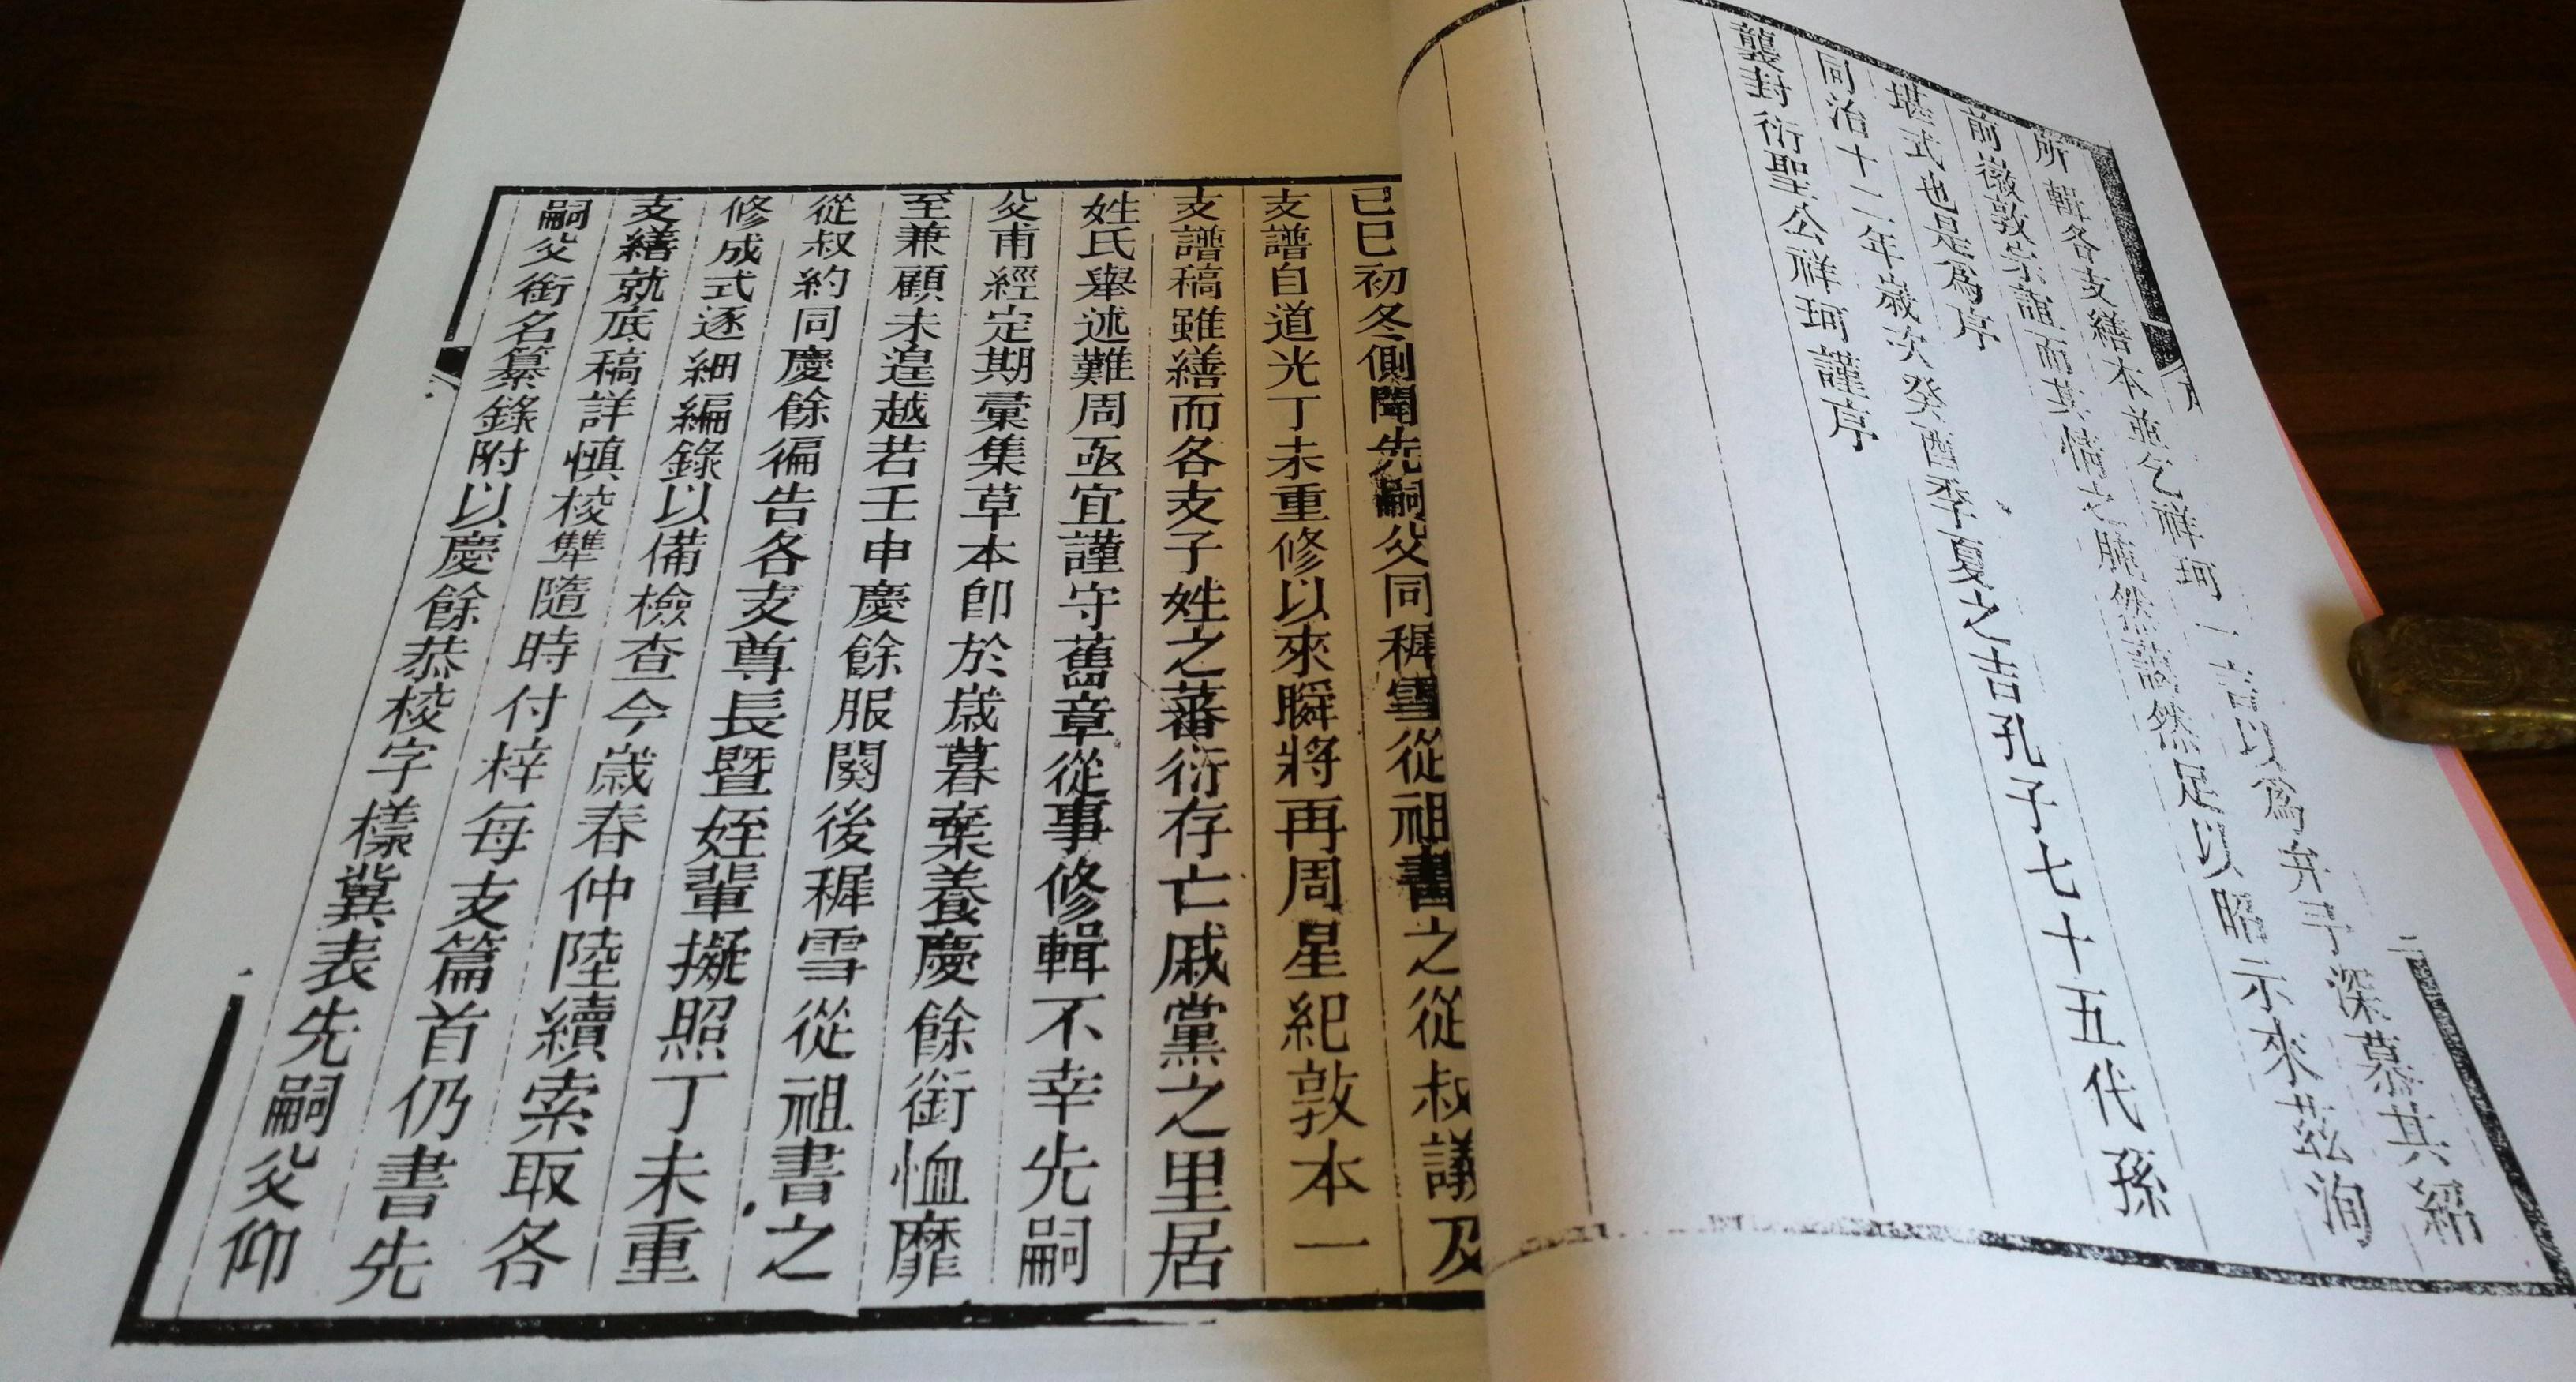 所輯各支繕本並乞祥珂一言以爲弁予深慕其紹
前徽敦宗誼而其情之腩然藹然足以昭示來茲洵
堪式也是爲序
同治十二年歲次癸酉季夏之吉孔子七十五代孫
襲封衍聖公祥珂謹序
己巳初冬側聞先嗣父同穉雪從祖書之從叔議及
支譜自道光丁未重修以來瞬將再周星紀敦本一
支譜稿雖繕而各支子姓之蕃衍存亡戚黨之里居
姓氏舉述難周亟宜謹守舊章從事修輯不幸先嗣
父甫經定期彙集草本卽於歲暮棄養慶餘銜恤靡
至兼顧未遑越若壬申慶餘服闋後穉雪從祖書之
從叔約同慶餘徧告各支尊長暨姪輩擬照丁未重
修成式逐細編錄以備檢查今歲春仲陸續索取各
支繕就底稿詳愼棱讐隨時付梓每支篇首仍書先
嗣父銜名纂錄附以慶餘恭棱字樣冀表先嗣父仰